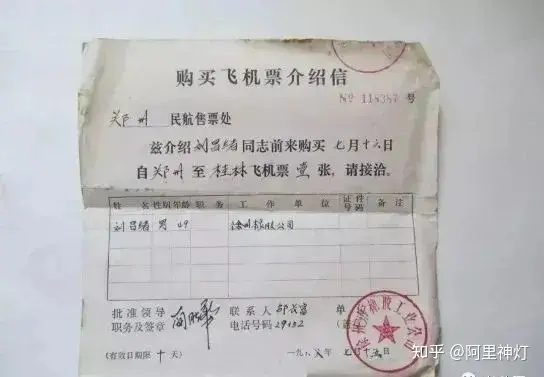 购买飞机票介绍信
№ 118387 号
郑州 民航售票处
兹介绍刘昌绪同志前来购买 七月十六日
自郑州至桂林飞机票壹张,请接洽。
姓名 性别 年龄 职务 工作单位 证件号码 备注
刘昌绪 男 49 橡胶公司
批准领导 联系人 单
职务及签章 电话号码29132
(有效日期限 十 天) 一九八八年 七 月十五日
知乎 @阿里神灯